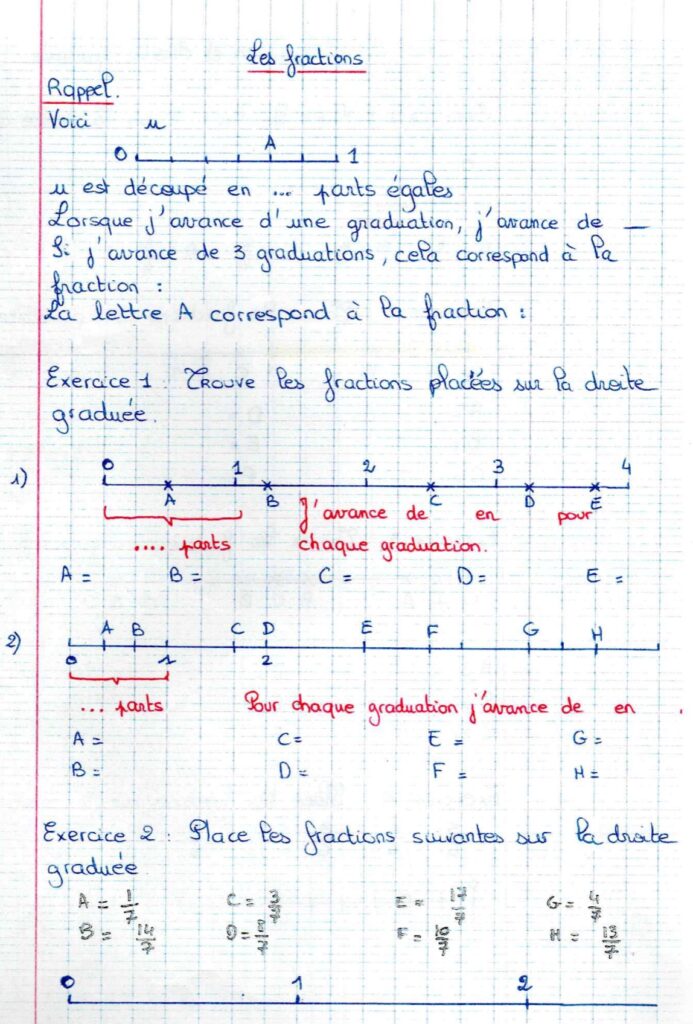 Les fractions
Rappel.
Voici u
0 A 1
u est découpé en ... parts égales
Lorsque j'avance d'une graduation, j'avance de __
Si j'avance de 3 graduations, cela correspond à la
fraction :
La lettre A correspond à la fraction :
Exercice 1 : Trouve les fractions placées sur la droite
graduée.
1) 0 1 2 3 4
A B C D E
J'avance de en pour
.... parts chaque graduation.
A = B = C = D = E =
2) A B C D E F G H
0 1 2
... parts Pour chaque graduation j'avance de en .
A = C = E = G =
B = D = F = H =
Exercice 2 : Place les fractions suivantes sur la droite
graduée
A = 1/7 C = E = 17/7 G = 4/7
B = 14/7 D = F = 10/7 H = 13/7
0 1 2